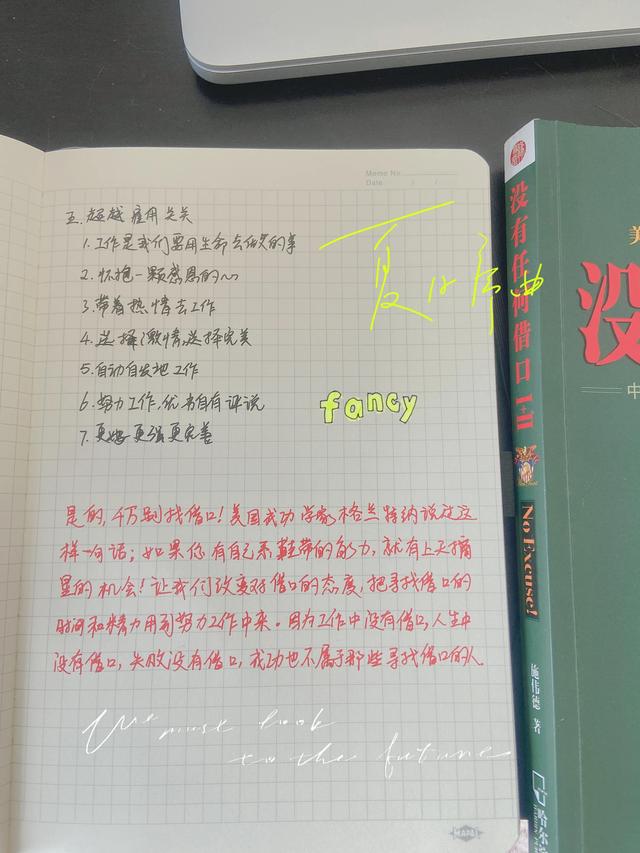 Memo No.
Date / /
五. 超越雇用关系
1. 工作是我们要用生命去做的事
2. 怀抱一颗感恩的心
3. 带着热情去工作
4. 选择激情,选择完美
5. 自动自发地工作
6. 努力工作,优劣自有评说
7. 更好更强更完善
夏日序曲
fancy
是的,千万别找借口!美国成功学家格兰特纳说过这
样一句话;如果你有自己系鞋带的能力,就有上天摘
星的机会!让我们改变对借口的态度,把寻找借口的
时间和精力用到努力工作中来。因为工作中没有借口,人生中
没有借口,失败没有借口,成功也不属于那些寻找借口的人
We must look
to the future
MAPA
没有任何借口 I+II
No Excuse!
施伟德 著
哈尔
美
没
中